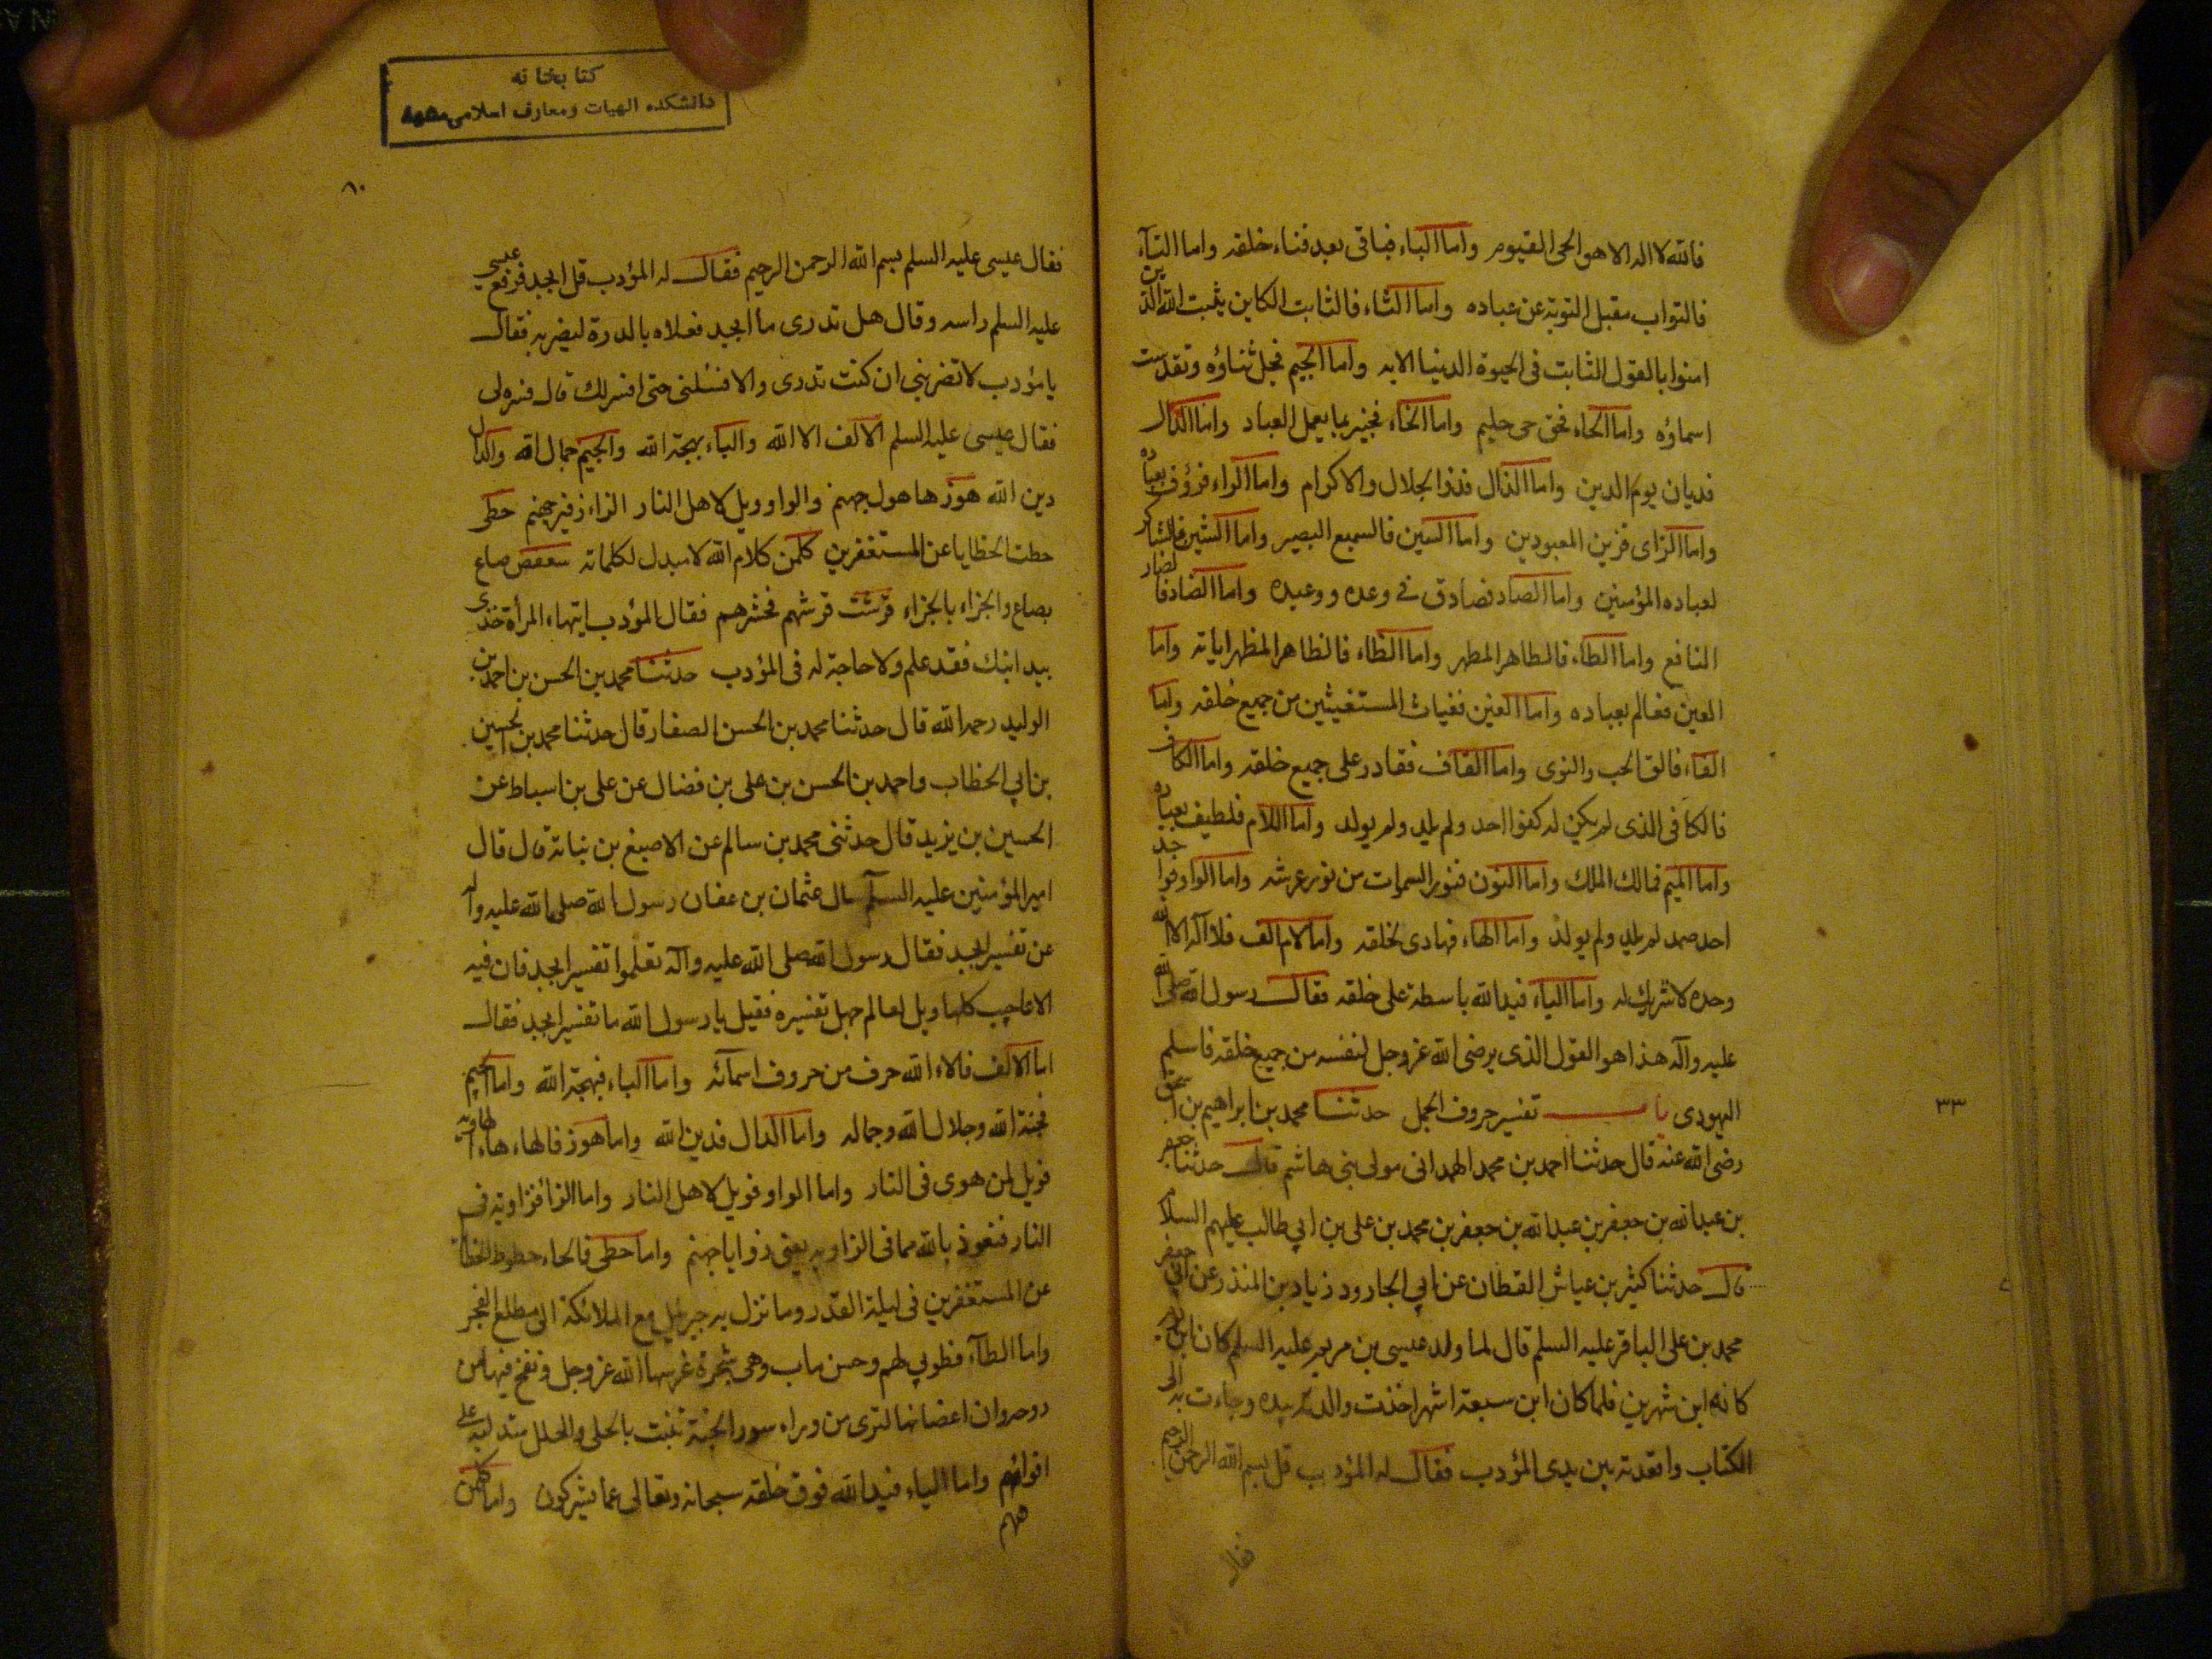 فالله لا اله الا هو الحى القيوم واما الباء فباقى بعد فناء خلقه واما التاء
فالتواب مقبل التوبة عن عباده واما الثاء فالثابت الكاين يثبت الله الذين
امنوا بالقول الثابت فى الحيوة الدنيا الايه واما الجيم فجل ثناؤه وتقدست
اسماؤه واما الحاء فحق حى حليم واما الخاء فخبير بما يعمل العباد واما الدال
فديان يوم الدين واما الذال فذو الجلال والاكرام واما الراء فرؤف بعباده
واما الزاى فزين المعبودين واما السين فالسميع البصير واما الشين فالشاكر
لعباده المؤمنين واما الصاد فصادق فى وعده ووعيده واما الضاد فالضار
النافع واما الطاء فالطاهر المطهر واما الظاء فالظاهر المظهر اياته واما
العين فعالم بعباده واما الغين فغياث المستغيثين من جميع خلقه واما
الفاء فالق الحب والنوى واما القاف فقادر على جميع خلقه واما الكاف
فالكافى الذى لم يكن له كفوا احد ولم يلد ولم يولد واما اللام فلطيف بعباده
واما الميم فمالك الملك واما النون فنور السموات من نور عرشه واما الواو فواحد
احد صمد لم يلد ولم يولد واما الهاء فهادى لخلقه واما لام الف فلا اله الا الله
وحده لا شريك له واما الياء فيد الله باسطة على خلقه فقال رسول الله صلى الله
عليه وآله هذا هو القول الذى يرضى الله عز وجل لنفسه من جميع خلقه فاسلم
٣٣
اليهودى باب تفسير حروف الجمل حدثنا محمد بن ابراهيم بن اسحق
رضى الله عنه قال حدثنا احمد بن محمد الهمدانى مولى بنى هاشم قال حدثنا جعفر
بن عبد الله بن جعفر بن عبد الله بن جعفر بن محمد بن على بن ابي طالب عليهم السلام
قال حدثنا كثير بن عياش القطان عن ابي الجارود زياد بن المنذر عن ابي جعفر
محمد بن على الباقر عليه السلم قال لما ولد عيسى بن مريم عليه السلم كان ابن يوم
كانه ابن شهرين فلما كان ابن سبعة اشهر اخذت والدته بيده وجاءت به الى
الكتاب واقعدته بين يدى المؤدب فقال له المؤدب قل بسم الله الرحمن الرحيم
فقال
كتابخانه
دانشكده الهيات ومعارف اسلامى مشهد
٨٠
فقال عيسى عليه السلم بسم الله الرحمن الرحيم فقال له المؤدب قل ابجد فرفع عيسى
عليه السلم راسه وقال هل تدرى ما ابجد فعلاه بالدرة ليضربه فقال
يا مؤدب لا تضربني ان كنت تدرى والا فسئلنى حتى افسر لك قال فسره لى
فقال عيسى عليه السلم الالف الا الله والباء بهجة الله والجيم جمال الله والدال
دين الله هوز ها هول جهنم والواو ويل لاهل النار الزاء زفير جهنم حطى
حطت الخطايا عن المستغفرين كلمن كلام الله لا مبدل لكلماته سعفص صاع
بصاع والجزاء بالجزاء قرشت قرشهم فحشرهم فقال المؤدب ايتهاء المرأة خذى
بيد ابنك فقد علم ولا حاجة له فى المؤدب حدثنا محمد بن الحسن بن احمد بن
الوليد رحمه الله قال حدثنا محمد بن الحسن الصفار قال حدثنا محمد بن الحسين
بن ابي الخطاب واحمد بن الحسن بن على بن فضال عن على بن اسباط عن
الحسين بن يزيد قال حدثنى محمد بن سالم عن الاصبغ بن نباتة قال قال
امير المؤمنين عليه السلم سال عثمان بن عفان رسول الله صلى الله عليه وآله
عن تفسير ابجد فقال رسول الله صلى الله عليه وآله تعلموا تفسير ابجد فان فيه
الاعاجيب كلها ويل لعالم جهل تفسيره فقيل يا رسول الله ما تفسير ابجد فقال
اما الالف فالاء الله حرف من حروف اسمائه واما الباء فبهجة الله واما الجيم
فجنة الله وجلال الله وجماله واما الدال فدين الله واما هوز فالهاء هاء الهاويه
فويل لمن هوى فى النار واما الواو فويل لاهل النار واما الزا فزاوية فى
النار فنعوذ بالله مما فى الزاويه يعنى زوايا جهنم واما حطى فالحاء حطوط الخطايا
عن المستغفرين فى ليلة القدر وما نزل به جبرئيل مع الملائكة الى مطلع الفجر
واما الطآء فطوبي لهم وحسن ماب وهى شجرة غرسها الله عز وجل ونفخ فيها من
روحه وان اغصانها لترى من وراء سور الجنة تنبت بالحلى والحلل متدلية على
افواههم واما الياء فيد الله فوق خلقه سبحانه وتعالى عما يشركون واما كلمن